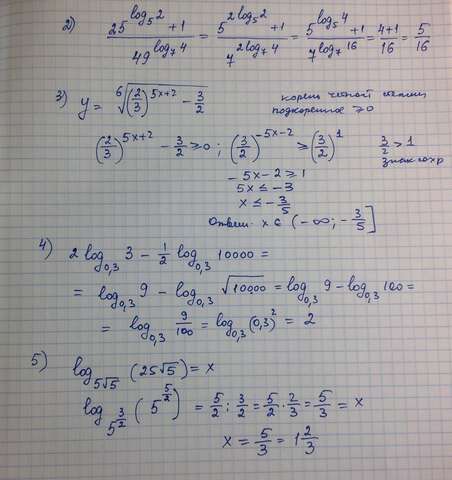 2) (25^(log_5 2) + 1) / 49^(log_7 4) = (5^(2 log_5 2) + 1) / 7^(2 log_7 4) = (5^(log_5 4) + 1) / 7^(log_7 16) = (4+1)/16 = 5/16
3) y = ⁶√((2/3)^(5x+2) − 3/2) корень четной степени
подкоренное ≥0
(2/3)^(5x+2) − 3/2 ≥ 0 ; (3/2)^(−5x−2) ≥ (3/2)^1 3/2 > 1
знак сохр
−5x−2 ≥ 1
5x ≤ −3
x ≤ −3/5
Ответ: x ∈ (−∞; −3/5]
4) 2 log_0,3 3 − 1/2 log_0,3 10000 =
= log_0,3 9 − log_0,3 √10000 = log_0,3 9 − log_0,3 100 =
= log_0,3 9/100 = log_0,3 (0,3)² = 2
5) log_5√5 (25√5) = x
log_5^(3/2) (5^(5/2)) = 5/2 : 3/2 = 5/2 · 2/3 = 5/3 = x
x = 5/3 = 1 2/3